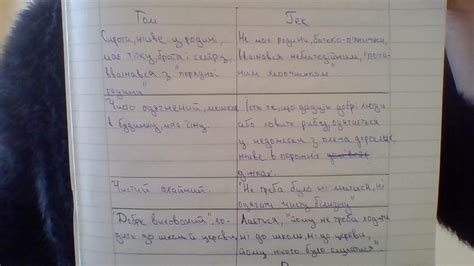 Том
Гек
Сирота, живе у родині,
має тітку, брата і сестру,
вважався з "порядної
родини"
Не має родини, батько-п'яничка,
вважався неблагодійним, "пога-
ним хлопчиськом"
Чисто одягнений, мешкає
в будинку, має їжу.
Їсть те, що дадуть добрі люди
або ловить рибу, одягається
у недоноски з плеча дорослих,
живе в порожніх
діжках.
Чистий охайний.
"Не треба було ні митися, ні
одягати чисту білизну"
"Добре вихований", хо-
дить до школи й церкви
Лається, "йому не треба ходити
ні до школи, ні до церкви,
йому нікого було слухатися"